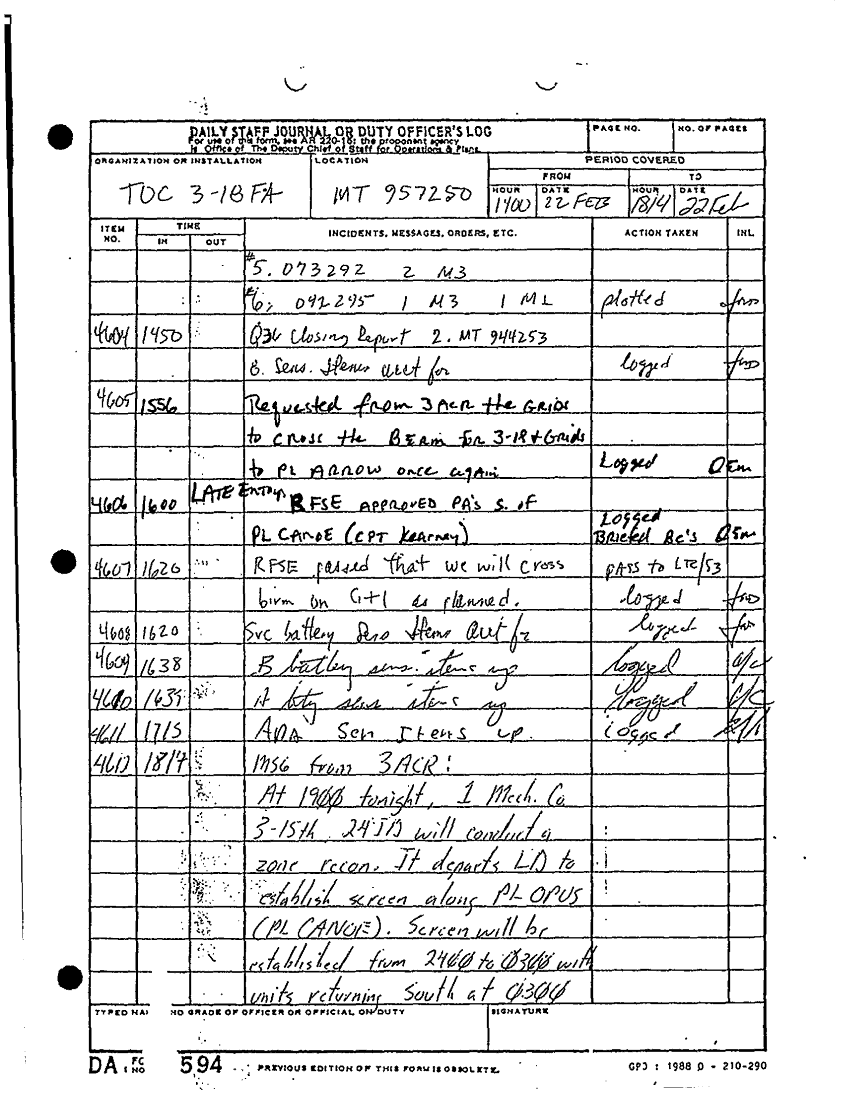 DAILY STAFF JOURNAL OR DUTY OFFICER'S LOG
For use of this form, see AR 220-15; the proponent agency
is Office of The Deputy Chief of Staff for Operations & Plans.
PAGE NO.
NO. OF PAGES
ORGANIZATION OR INSTALLATION
TOC 3-18 FA
LOCATION
MT 957250
PERIOD COVERED
FROM
TO
HOUR DATE HOUR DATE
1400 22 FEB 1814 22 Feb
ITEM NO. TIME IN OUT INCIDENTS, MESSAGES, ORDERS, ETC. ACTION TAKEN INL
#5. 073292 2 M3
#6; 092295 1 M3 1 M1 plotted
4604 1450 Q36 Closing Report 2. MT 944253
8. Sens. Items acct for logged
4605 1556 Requested from 3ACR the GRIDS
to cross the BERM for 3-18 + Grids
to PL ARROW once again Logged
4606 1600 LATE Entry RFSE APPROVED PA'S S. of
PL CANOE (CPT Kearney) Logged Briefed BC'S
4607 1620 RFSE passed that we will cross PASS to LTC/S3
birm on G+1 as planned. logged
4608 1620 Svc battery Sens Items Acct for logged
4609 1638 B battery sens. items up logged
4610 1639 A bty sens items up Logged
4611 1715 ADA Sen Items up. Logged
4612 1817 MSG from 3ACR:
At 1900 tonight, 1 Mech. Co
3-15th 24 ID will conduct a
zone recon. It departs LD to
establish screen along PL OPUS
(PL CANOE). Screen will be
established from 2400 to 0300 with
units returning South at 0300
TYPED NA NO GRADE OF OFFICER OR OFFICIAL ON DUTY
SIGNATURE
DA FO NO 594
PREVIOUS EDITION OF THIS FORM IS OBSOLETE.
GPO : 1988 O - 210-290